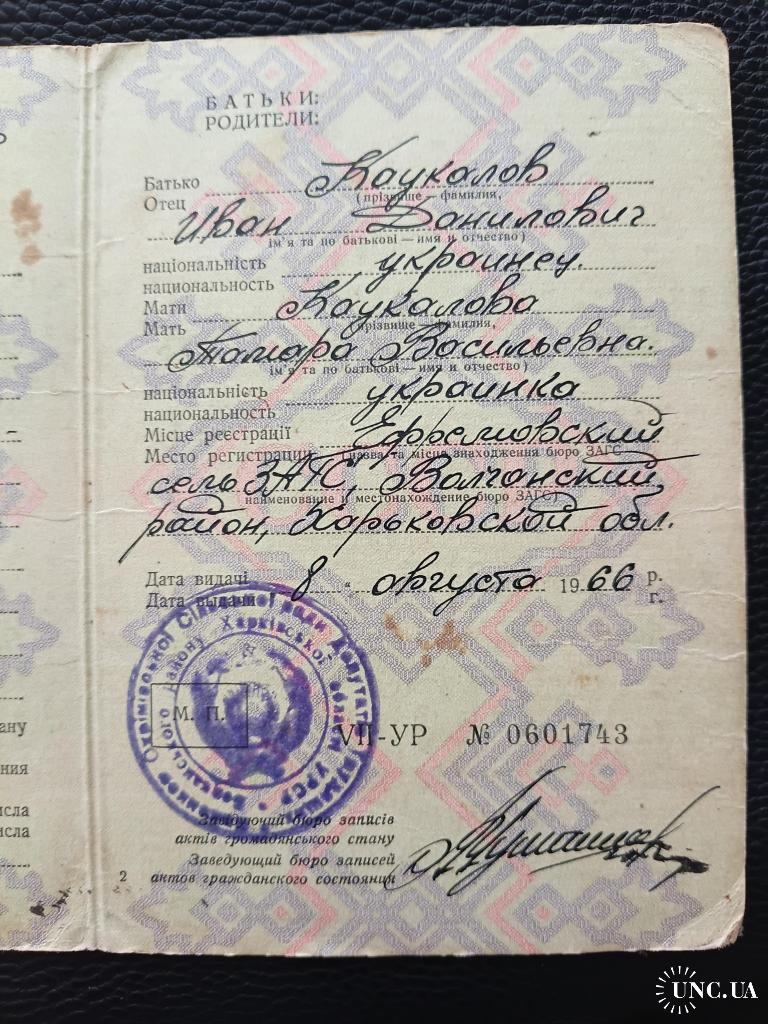 БАТЬКИ:
РОДИТЕЛИ:
Батько Каукалов
Отец (прізвище — фамилия,
Иван Данилович
ім'я та по батькові — имя и отчество)
національність украинец.
национальность
Мати Каукалова
Мать (прізвище — фамилия,
Тамара Васильевна.
ім'я та по батькові — имя и отчество)
національність украинка
национальность
Місце реєстрації Ефремовский
Место регистрации (назва та місце знаходження бюро ЗАГС
сель ЗАГС, Волчанский
наименование и местонахождение бюро ЗАГС)
район, Харьковской обл.
Дата видачі 8 " августа 1966 р.
Дата выдачи г.
М. П.
VII-УР № 0601743
Завідуючий бюро записів
актів громадянського стану
Заведующий бюро записей
2 актов гражданского состояния
ану
ния
исла
исла
UNC.UA